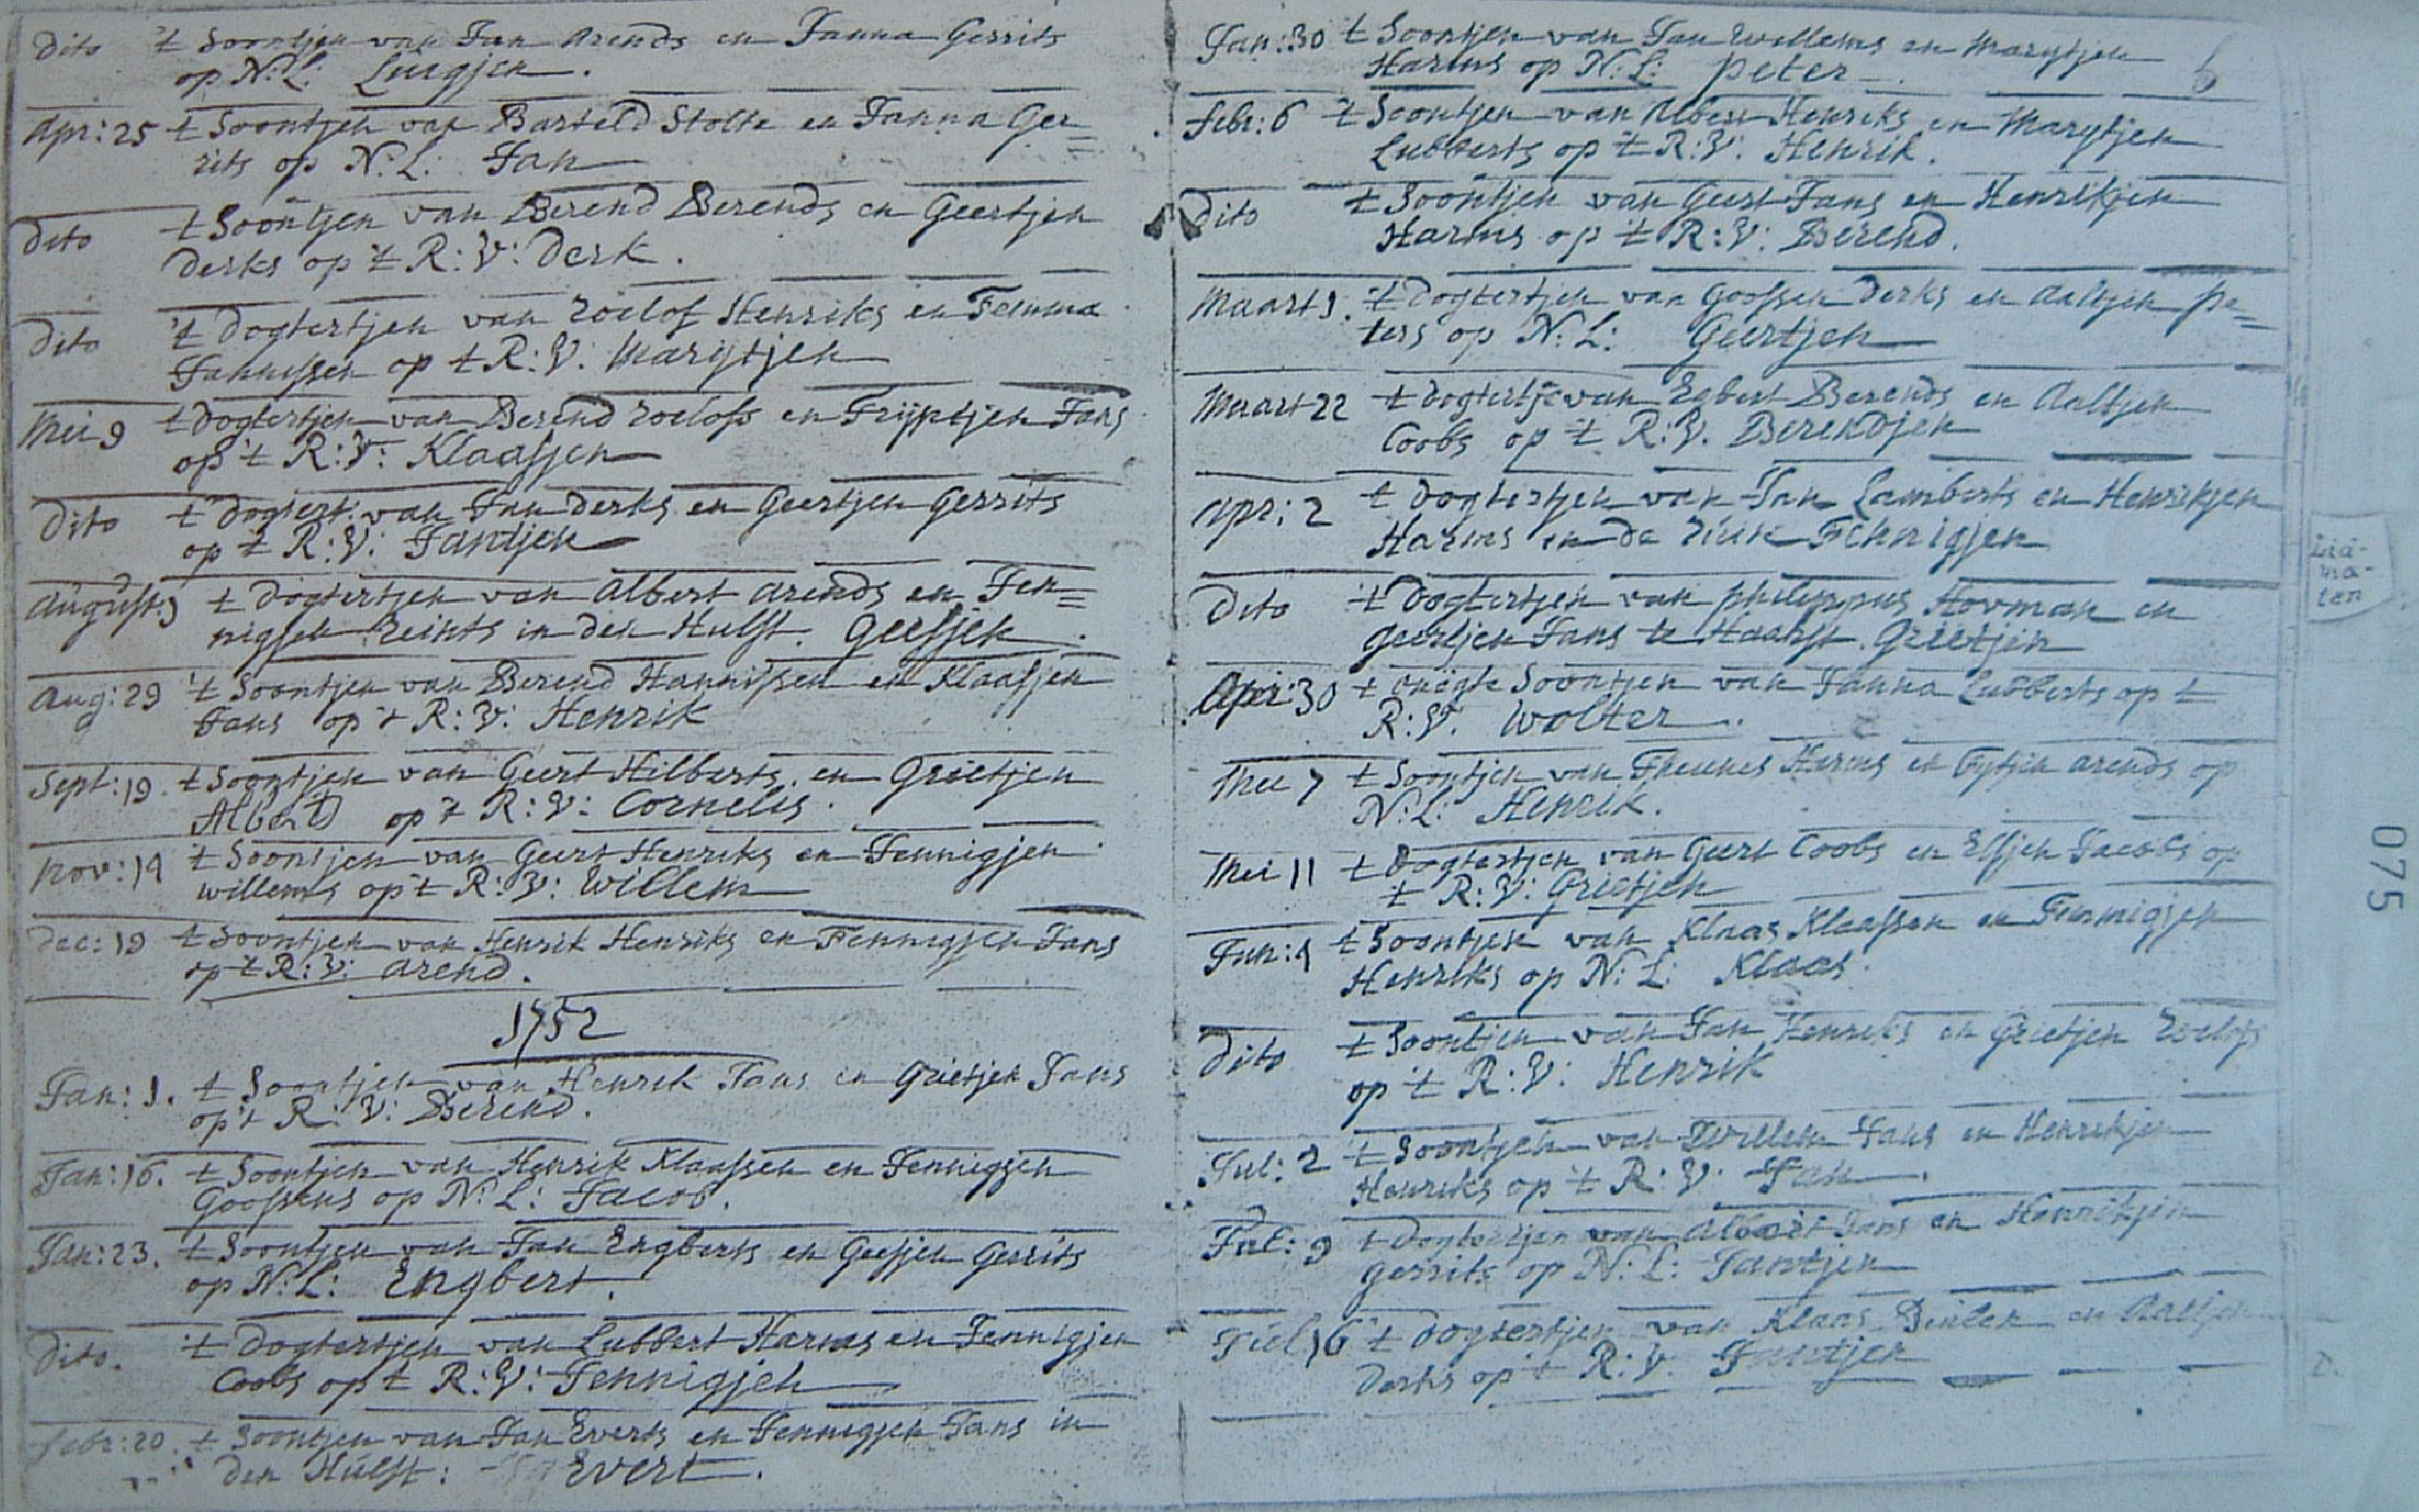 dito 't Soontjen van Jan Arends en Janna Gerrits
op N: L: Luigjen.
Apr: 25 't Soontjen van Barteld Stolte en Janna Ger=
rits op N: L: Jan
dito 't Soontjen van Berend Berends en Geertjen
derks op 't R: V: derk.
dito 't dogtertjen van roelof Henriks en Femma
Jannissen op t R: V: Marijtjen
Mei 9 t dogtertjen van Berend roelofs en Trijntjen Jans
op 't R: V: Klaasjen
dito t dogtert: van Jan derks en Geertjen Gerrits
op t R: V: Jantjen
August: 1 t dogtertjen van Albert Arends en Fen=
nigjen reints in den Hulst. Geesjen.
Aug: 29 't Soontjen van Berend Hannissen en Klaasjen
Jans op 't R: V: Henrik
Sept: 19. t Soontjen van Geert Hilberts en Grietjen
Alberts op 't R: V: Cornelis.
Nov: 14 't Soontjen van Geert Henriks en Fennigjen
willems op 't R: V: Willem
Dec: 19 t Soontjen van Henrik Henriks en Fennigjen Jans
op t R: V: Arend.
1752
Jan: 1. t Soontjen van Henrik Jans en Grietjen Jans
op 't R: V: Berend.
Jan: 16. t Soontjen van Henrik Klaassen en Fennigjen
Goossens op N: L: Jacob.
Jan: 23. t Soontjen van Jan Engberts en Geesjen Gerrits
op N: L: Engbert.
dito. 't dogtertjen van Lubbert Harms en Fennigjen
Coobs op t R: V: Fennigjen
Febr: 20. t Soontjen van Jan Everts en Fennigjen Jans in
den Hulst: Evert.
Jan: 30 t Soontjen van Jan Willems en Marijtjen
Harms op N: L: Peter.
6
Febr: 6 't Soontjen van Albert Henriks en Marijtjen
Lubberts op 't R: V: Henrik.
dito t Soontjen van Geert Jans en Henrikjen
Harms op 't R: V: Berend.
Maart 1. 't dogtertjen van Goossen derks en Aaltjen Pe=
ters op N: L: Geertjen
Maart 22 t dogtertje van Egbert Berends en Aaltjen
Coobs op 't R: V. Berendjen
Apr: 2 t dogtertjen van Jan Lamberts en Henrikjen
Harms in de Fennigjen
Dito t Dogtertjen van Philippus Hovman en
Geertjen Jans te Haalst. Grietjen
Apr: 30 t onegte Soontjen van Janna Lubberts op t
R: V. Wolter.
Mei 7 t Soontjen van Theunes Harms en Fytjen Arends op
N: L: Henrik.
Mei 11 t Dogtertjen van Geert Coobs en Elsjen Jacobs op
't R: V: Grietjen
Jun: 4 t Soontjen van Klaas Klaassen en Fennigjen
Henriks op N: L: Klaas.
Dito t Soontjen van Jan Henriks en Grietjen roelofs
op 't R: V: Henrik
Jul: 2 t Soontjen van Willem Jans en Henrikjen
Henriks op 't R: V: Jan.
Jul: 9 t Dogtertjen van Albert Jans en Henrikjen
Gerrits op N: L: Jantjen
Jul 16 't dogtertjen van Klaas en Aaltjen
Derks op 't R: V. Jantjen
075